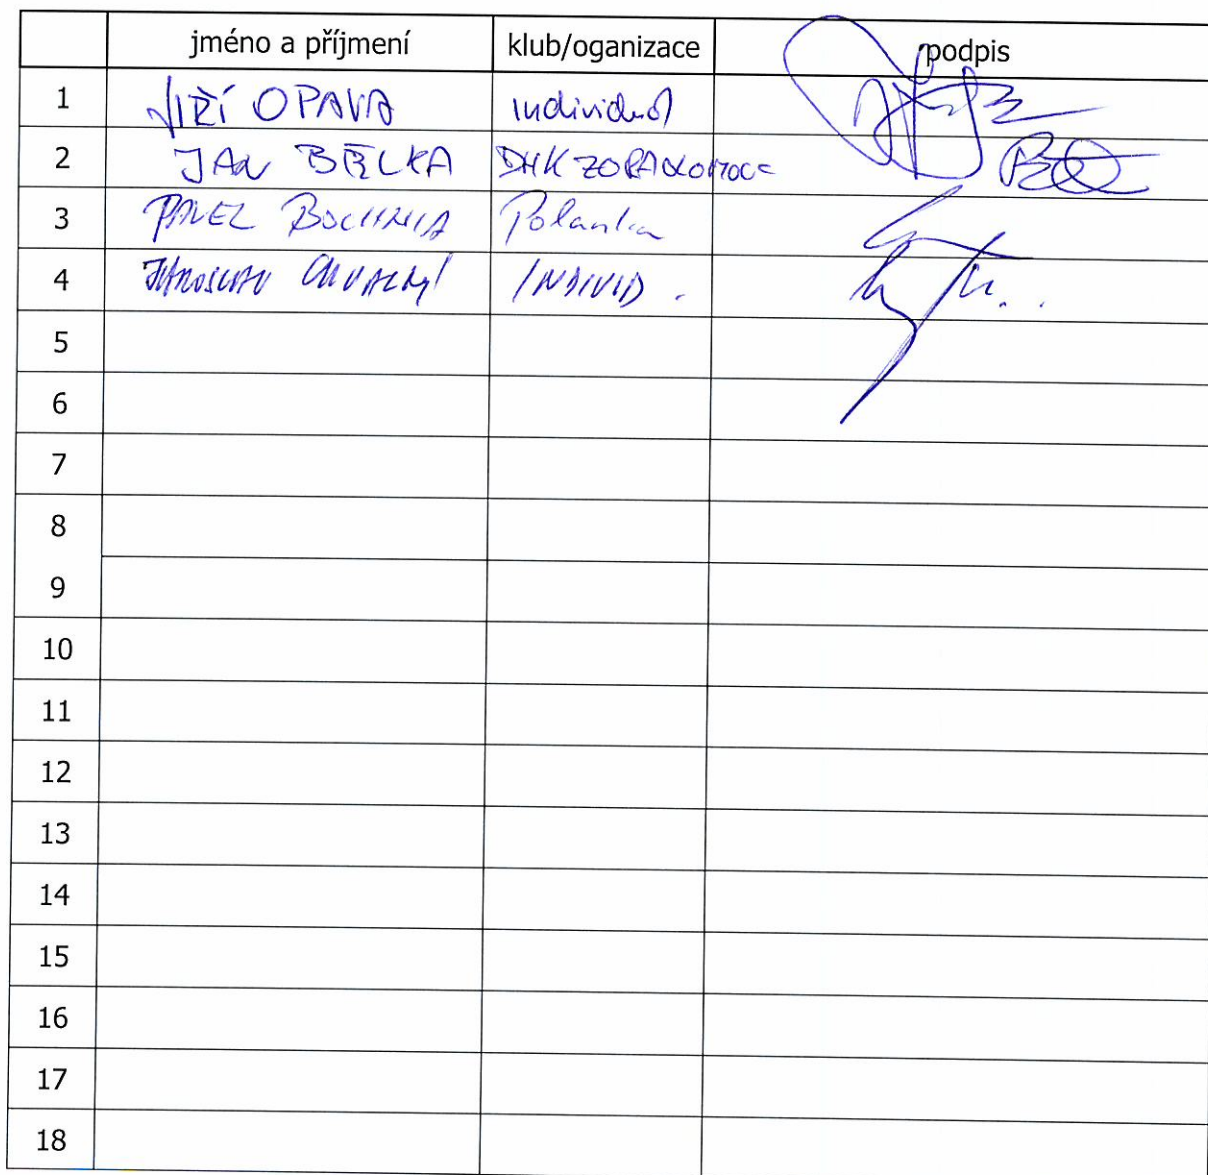 jméno a příjmení klub/oganizace podpis
1 JIŘÍ OPAVA individuál
2 JAN BĚLKA DHK ZORA OLOMOUC
3 PAVEL BOCHNIA Polanka
4 JAROSLAV INDIVID.
5
6
7
8
9
10
11
12
13
14
15
16
17
18